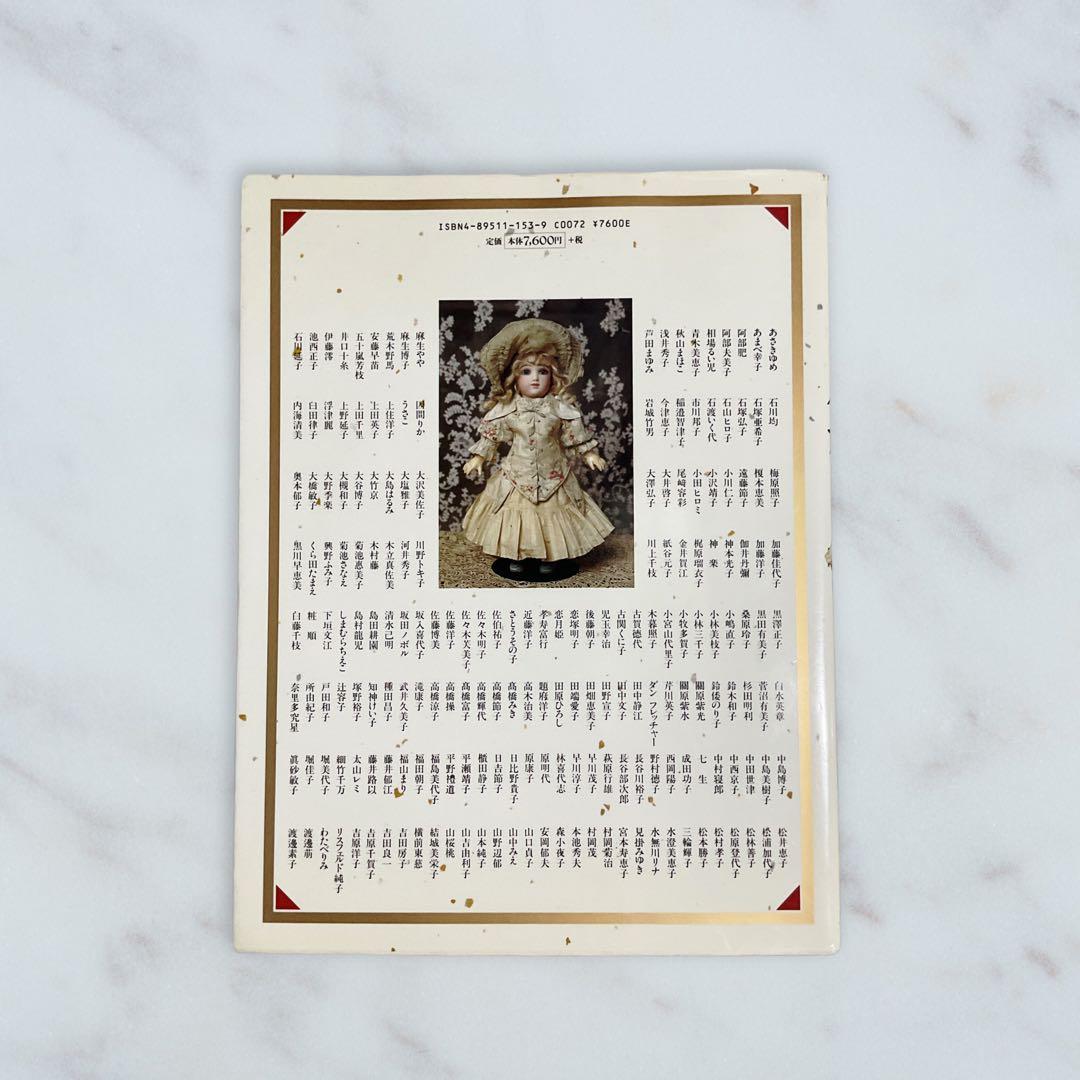 ISBN4-89511-153-9 C0072 ¥7600E
定価 本体7,600円 +税
あさきゆめ
あまべ幸子
阿部肥
阿部夫美子
相場るい児
青木美恵子
秋山まほこ
浅井秀子
芦田まゆみ
麻生やや
麻生博子
荒木野馬
安藤早苗
五十嵐芳枝
井口十糸
伊藤澪
池西正子
石川均
石塚亜希子
石塚弘子
石山ヒロ子
石渡いく代
市川邦子
稲邉智津子
今津恵子
岩城竹男
因間りか
うさこ
上住洋子
上田英子
上田千里
上野延子
浮津麗
臼田律子
内海清美
梅原照子
榎本恵美
遠藤節子
小川仁子
小沢靖子
小田ヒロミ
尾﨑容彩
大井啓子
大澤弘子
大沢美佐子
大塩雅子
大島はるみ
大竹京
大谷博子
大槻和子
大野季楽
大橋敏子
奥本郁子
加藤佳代子
加藤洋子
伽井丹彌
神本光子
神楽
梶原瑠衣子
金井賀江
紙谷元子
川上千枝
川野トキ子
河井秀子
木立真佐美
木村藤
菊池惠美子
菊池さなえ
興野ふみ子
くら田たまえ
黒川早恵美
黒澤正子
黒田有美子
桑原玲子
小嶋直子
小林美枝子
小林三千子
小牧多賀子
小宮山代里子
木暮照子
古賀徳代
古関くに子
児玉幸治
後藤朝子
恋塚明子
恋月姫
孝寿富行
近藤洋子
さとうその子
佐伯祐子
佐々木明子
佐々木芙美子
佐藤洋子
佐藤博美
坂入喜代子
坂田ノボル
清水己明
島田耕園
島村龍児
しまむらちえこ
下垣文江
粧順
白藤千枝
白水英章
菅沼有美子
杉田明利
鈴木和子
鈴倭のり子
關原紫光
關原紫水
芹川英子
ダン フレッチャー
田中静江
田中文子
田野宣子
田畑恵美子
田端愛子
田原ひろし
題府洋子
高木治美
髙橋みき
高橋節子
高橋輝代
髙橋富子
高橋操
高橋涼子
滝康子
武井久美子
種田昌子
知神けい子
塚野裕子
辻容子
戸田和子
所由紀子
奈里多究星
中島博子
中島美樹子
中田世津
中西京子
中村寝郎
七生
成田功子
西岡陽子
野村徳子
長谷川裕子
長谷部次郎
萩原行雄
早川茂子
早川淳子
林喜代志
原明代
原康子
日比野貴子
日吉節子
櫃田静子
平瀬靖子
平野禮道
福島美代子
福田朝子
福山まり
藤井郁江
藤井路以
太山レミ
細竹千万
堀美代子
堀佳子
眞砂敏子
松井恵子
松浦加代子
松林善子
松原登代子
松村孝子
松本勝子
三輪輝子
水澄美恵子
水無川リナ
見掛みゆき
宮本寿恵子
村岡菊治
村岡茂
本池秀夫
森小夜子
安岡郁夫
山口貞子
山中みえ
山野辺郁
山本純子
山吉由利子
山桜桃
結城美栄子
横前東慈
吉田房子
吉田良一
吉原千賀子
吉原洋子
リスフェルト純子
わたべりみ
渡邊萠
渡邊素子